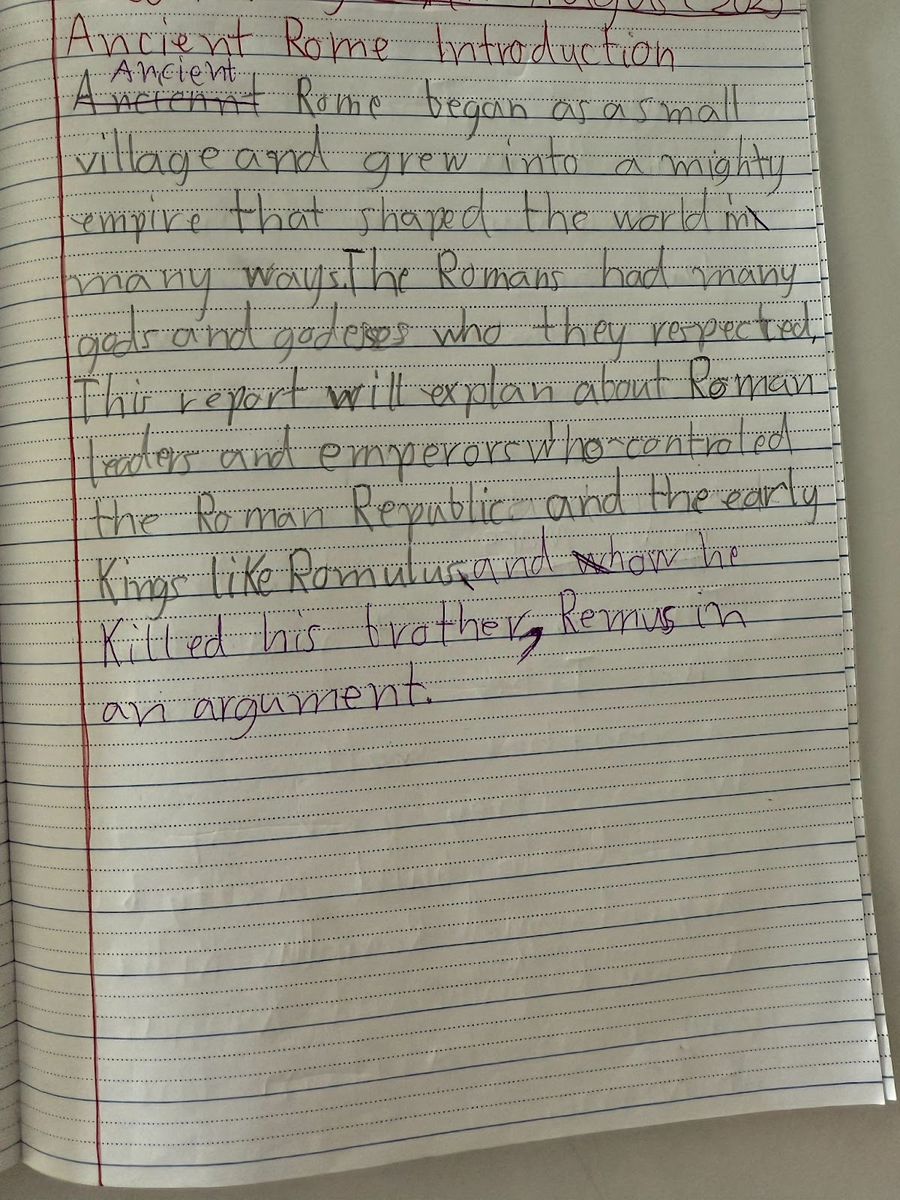 Ancient Rome Introduction
Ancient
Ancrennt Rome began as a small
village and grew into a mighty
empire that shaped the world in
many ways. The Romans had many
gods and godesses who they respected.
This report will explan about Roman
leaders and emperors who controled
the Roman Republic and the early
Kings like Romulus and how he
Killed his brother, Remus in
an argument.